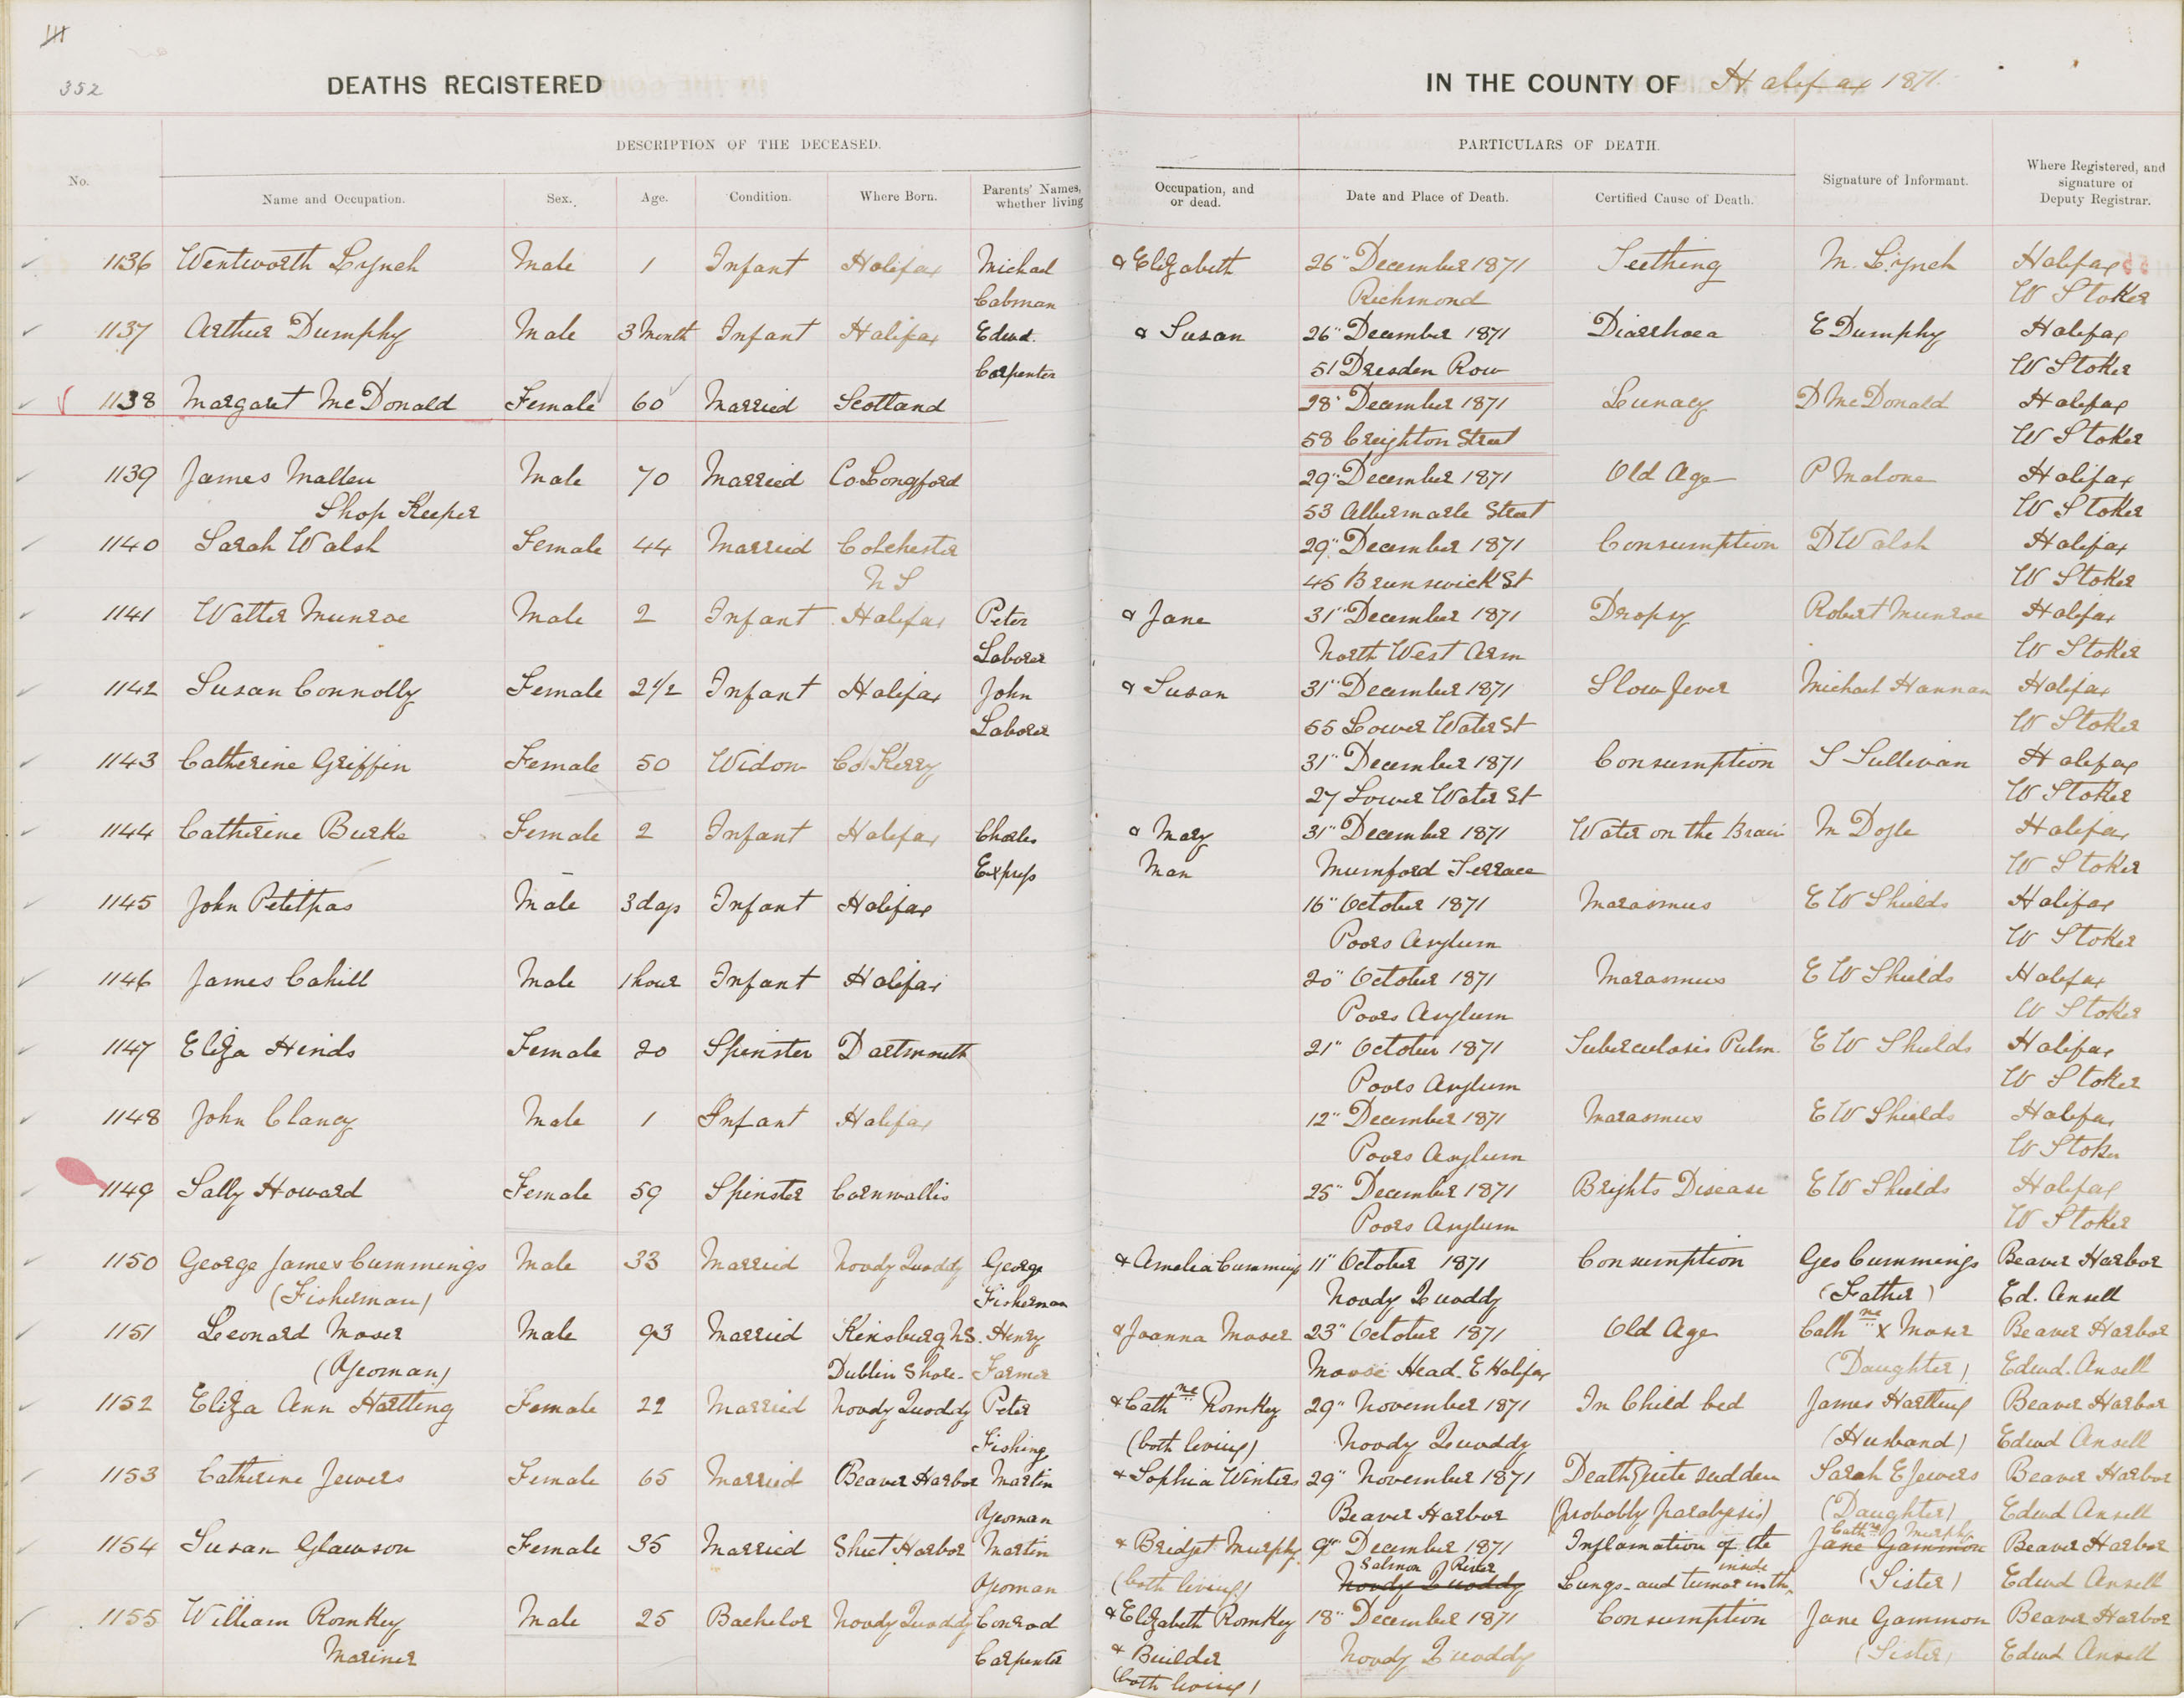 352
DEATHS REGISTERED IN THE COUNTY OF Halifax 1871.
DESCRIPTION OF THE DECEASED. PARTICULARS OF DEATH.
No. Name and Occupation. Sex. Age. Condition. Where Born. Parents' Names, Occupation, and whether living or dead. Date and Place of Death. Certified Cause of Death. Signature of Informant. Where Registered, and signature of Deputy Registrar.
1136 Wentworth Lynch Male 1 Infant Halifax Michael & Elizabeth 26" December 1871 Teething M. Lynch Halifax
Cabman Richmond W Stoker
1137 Arthur Dumphy Male 3 Month Infant Halifax Edwd. & Susan 26" December 1871 Diarrhoea E Dumphy Halifax
Carpenter 51 Dresden Row W Stoker
1138 Margaret McDonald Female 60 Married Scotland 28" December 1871 Lunacy D McDonald Halifax
58 Creighton Street W Stoker
1139 James Mallen Male 70 Married Co Longford 29" December 1871 Old Age P Malone Halifax
Shop Keeper 53 Albermarle Street W Stoker
1140 Sarah Walsh Female 44 Married Colchester 29" December 1871 Consumption D Walsh Halifax
N S 45 Brunswick St W Stoker
1141 Walter Munroe Male 2 Infant Halifax Peter & Jane 31" December 1871 Dropsy Robert Munroe Halifax
Laborer North West Arm W Stoker
1142 Susan Connolly Female 2 1/2 Infant Halifax John & Susan 31" December 1871 Slow fever Michael Hannan Halifax
Laborer 55 Lower Water St W Stoker
1143 Catherine Griffin Female 50 Widow Co Kerry 31" December 1871 Consumption S Sullivan Halifax
27 Lower Water St W Stoker
1144 Catherine Burke Female 2 Infant Halifax Charles & Mary 31" December 1871 Water on the Brain M Doyle Halifax
Express Man Mumford Terrace W Stoker
1145 John Petitpas Male 3 days Infant Halifax 16" October 1871 Marasmus E W Shields Halifax
Poors Asylum W Stoker
1146 James Cahill Male 1 hour Infant Halifax 20" October 1871 Marasmus E W Shields Halifax
Poors Asylum W Stoker
1147 Eliza Hinds Female 20 Spinster Dartmouth 21" October 1871 Tuberculosis Pulm. E W Shields Halifax
Poors Asylum W Stoker
1148 John Clancy Male 1 Infant Halifax 12" December 1871 Marasmus E W Shields Halifax
Poors Asylum W Stoker
1149 Sally Howard Female 59 Spinster Cornwallis 25" December 1871 Brights Disease E W Shields Halifax
Poors Asylum W Stoker
1150 George James Cummings Male 33 Married Noody Quoddy George & Amelia Cummings 11" October 1871 Consumption Geo Cummings Beaver Harbor
(Fisherman) Fisherman Noody Quoddy (Father) Ed. Ansell
1151 Leonard Moser Male 93 Married Kinsburg N.S. Henry & Joanna Moser 23" October 1871 Old Age Cathne X Moser Beaver Harbor
(Yeoman) Dublin Shore - Farmer Moose Head - E Halifax (Daughter) Edwd. Ansell
1152 Eliza Ann Hartling Female 22 Married Noody Quoddy Peter & Cathne Romkey 29" November 1871 In Child bed James Hartling Beaver Harbor
Fishing (both living) Noody Quoddy (Husband) Edwd Ansell
1153 Catherine Jewers Female 65 Married Beaver Harbor Martin & Sophia Winters 29" November 1871 Death quite sudden Sarah E Jewers Beaver Harbor
Yeoman Beaver Harbor (probably paralysis) (Daughter) Edwd Ansell
Cathne Murphy
1154 Susan Glawson Female 35 Married Sheet Harbor Martin & Bridget Murphy 9" December 1871 Inflamation of the Jane Gammon Beaver Harbor
Salmon River inside
Yeoman (both living) Noody Quoddy Lungs - and tumor in th. (Sister) Edwd Ansell
1155 William Romkey Male 25 Bachelor Noody Quoddy Conrod & Elizabeth Romkey 18" December 1871 Consumption Jane Gammon Beaver Harbor
Mariner Carpenter & Builder Noody Quoddy (Sister) Edwd Ansell
(both living)